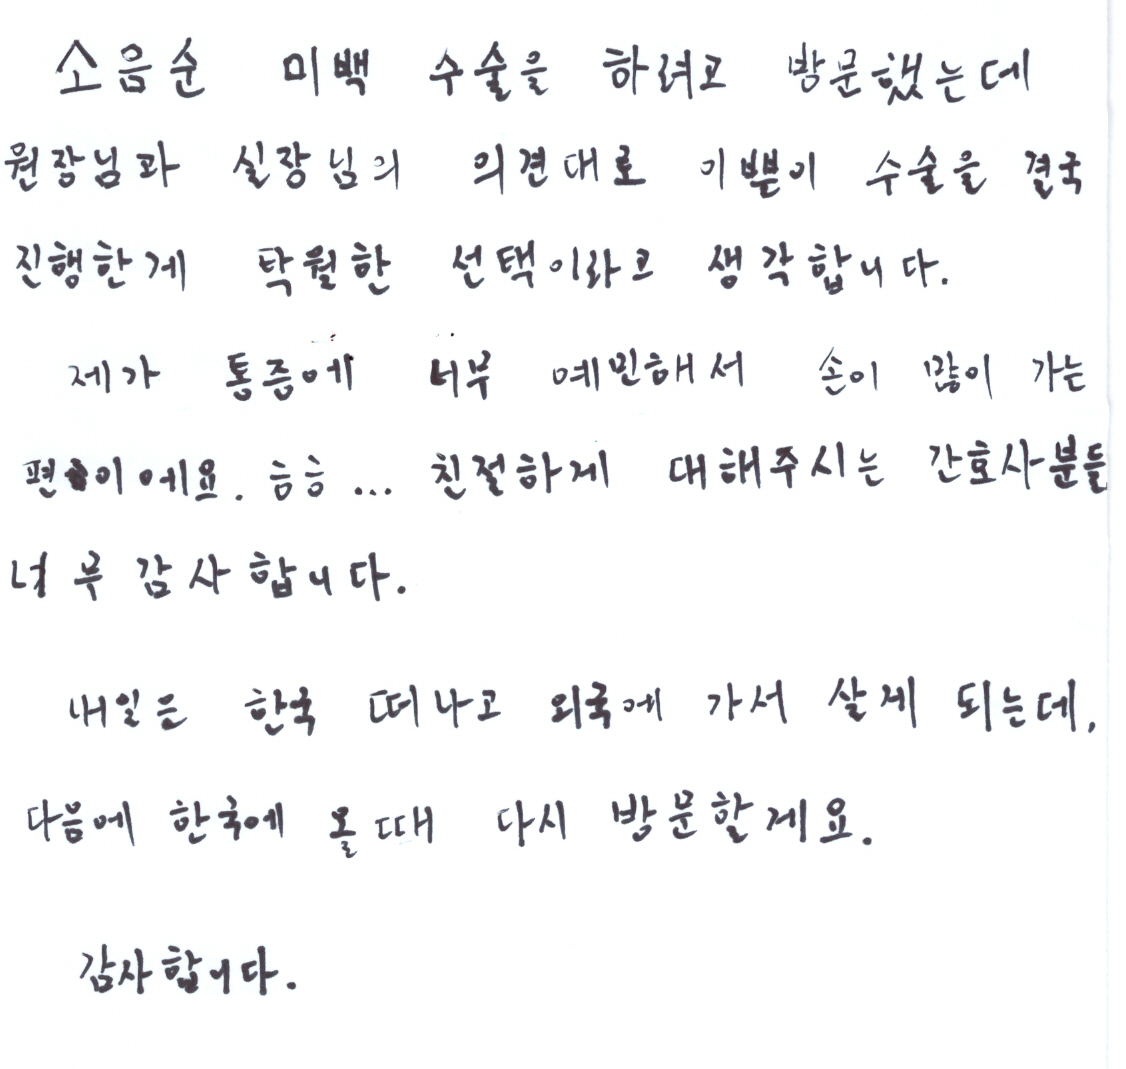 소음순 미백 수술을 하려고 방문했는데
원장님과 실장님의 의견대로 이쁜이 수술을 결국
진행한게 탁월한 선택이라고 생각합니다.
제가 통증에 너무 예민해서 손이 많이 가는
편이에요. 흠흠... 친절하게 대해주시는 간호사분들
너무 감사합니다.
내일은 한국 떠나고 외국에 가서 살게 되는데,
다음에 한국에 올 때 다시 방문할게요.
감사합니다.